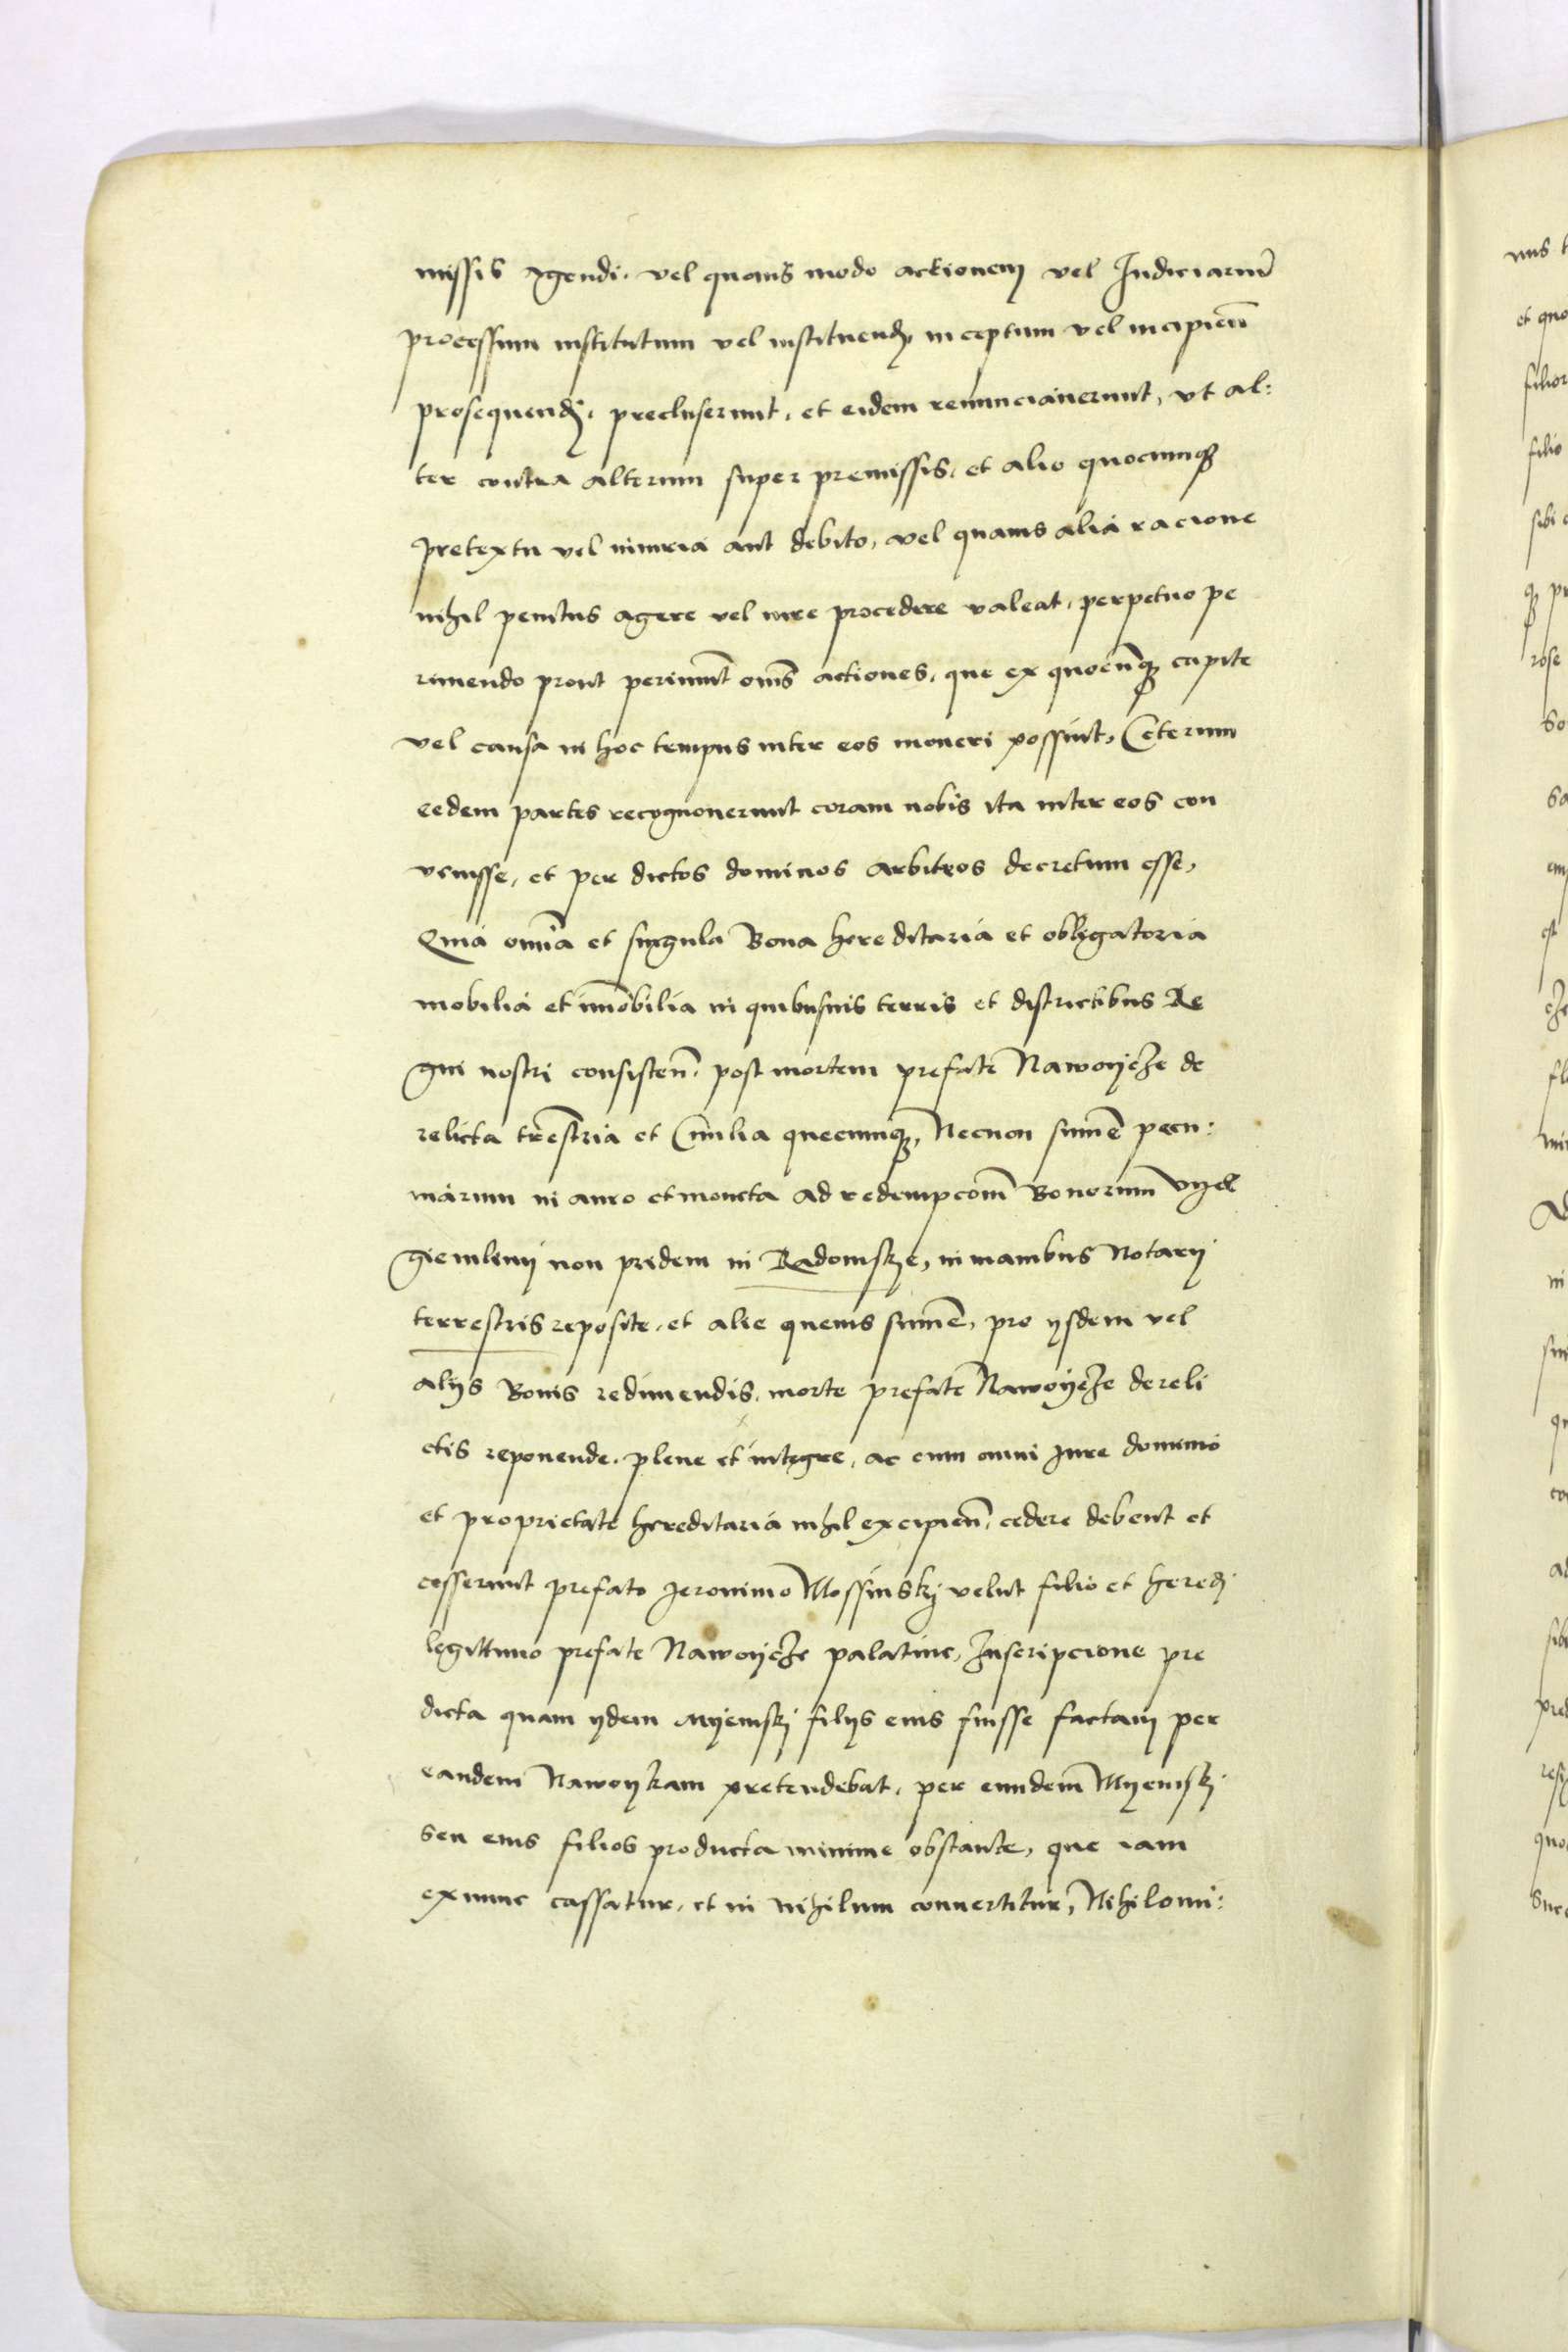 missis Agendi. vel quouis modo actionem vel Iudiciariũ
processum institutum vel instituend, inceptum vel incipieñ
prosequend. precluserunt. et eidem renunciauerunt, vt al:
ter contra alterum super premissis. et alio quocumqʒ
pretextu vel iniuria aut debito, vel quauis alia racione
nihil penitus agere vel iure procedere valeat, perpetuo pe
rimendo prout perimũt oms̃ actiones, que ex quocũqʒ capite
vel causa in hoc tempus inter eos moueri possint, Ceterum
eedem partes recognouerunt coram nobis ita inter eos con
venisse, et per dictos dominos arbitros decretum esse,
Quia omĩa et singula Bona hereditaria et obligatoria
mobilia et im̃obilia in quibusuis terris et districtibus Re
gni nostri consisteñ. post mortem prefate Nawoyche de
relicta tr̃estria et Ciuilia quecumqʒ, Necnon sum̃e pecu:
niarum in auro et moneta ad redempcoñi Bonorum Vyel
giemlyny non pridem in Radomskye, in manibus Notarij
terrestris reposite. et alie queuis sum̃e, pro ijsdem vel
alijs Bonis redimendis. morte prefate Nawoyche dereli
ctis reponende. plene et integre, ac cum omni Iure dominio
et proprietate hereditaria nihil excipieñ. cedere debent et
cesserunt prefato Ieronimo Mossinskj velut filio et hered
legittimo prefate Nawoyche palatine, Inscripcione pre
dicta quam ijdem Myemskj filijs eius fuisse factam per
eandem Nawoykam pretendebat. per eundem Myemskj
seu eius filios producta minime obstante, que iam
exnunc cassatur. et in nihilum conuertitur, Nihilomi: